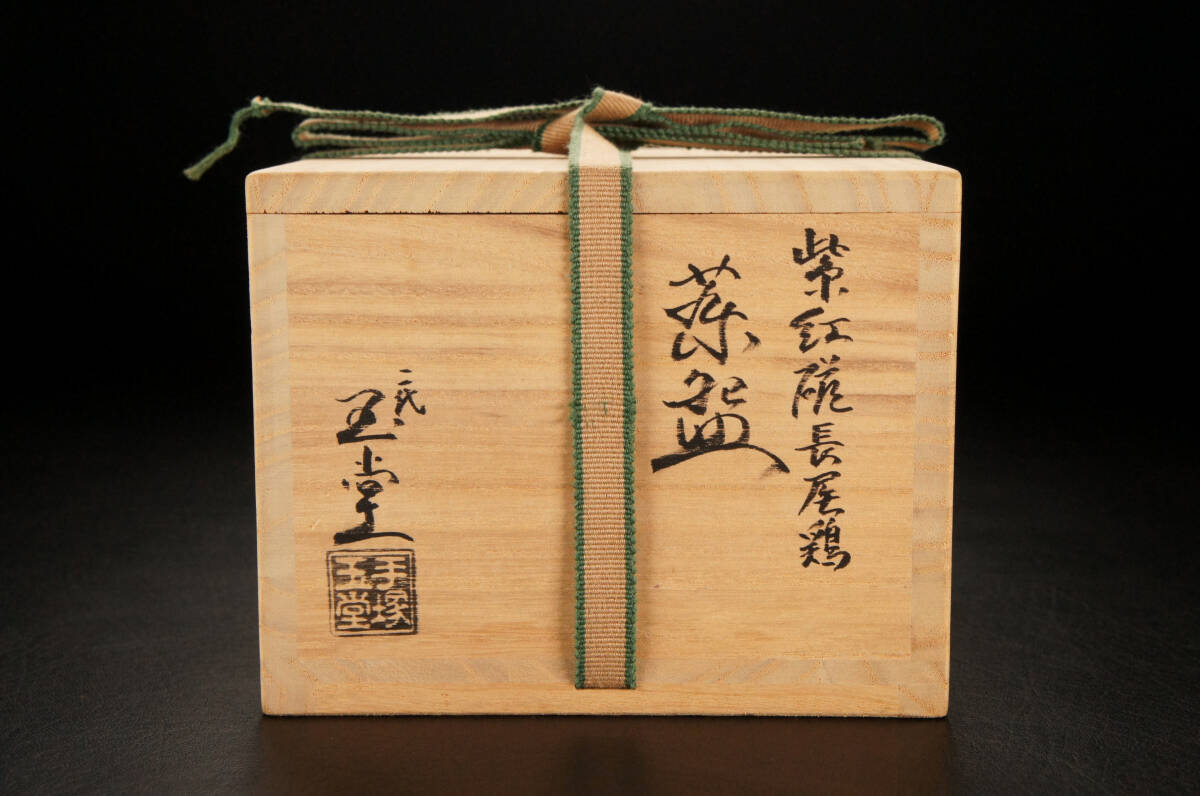 紫紅磁長尾鶏
茶盌
二代
玉堂
手塚
玉堂